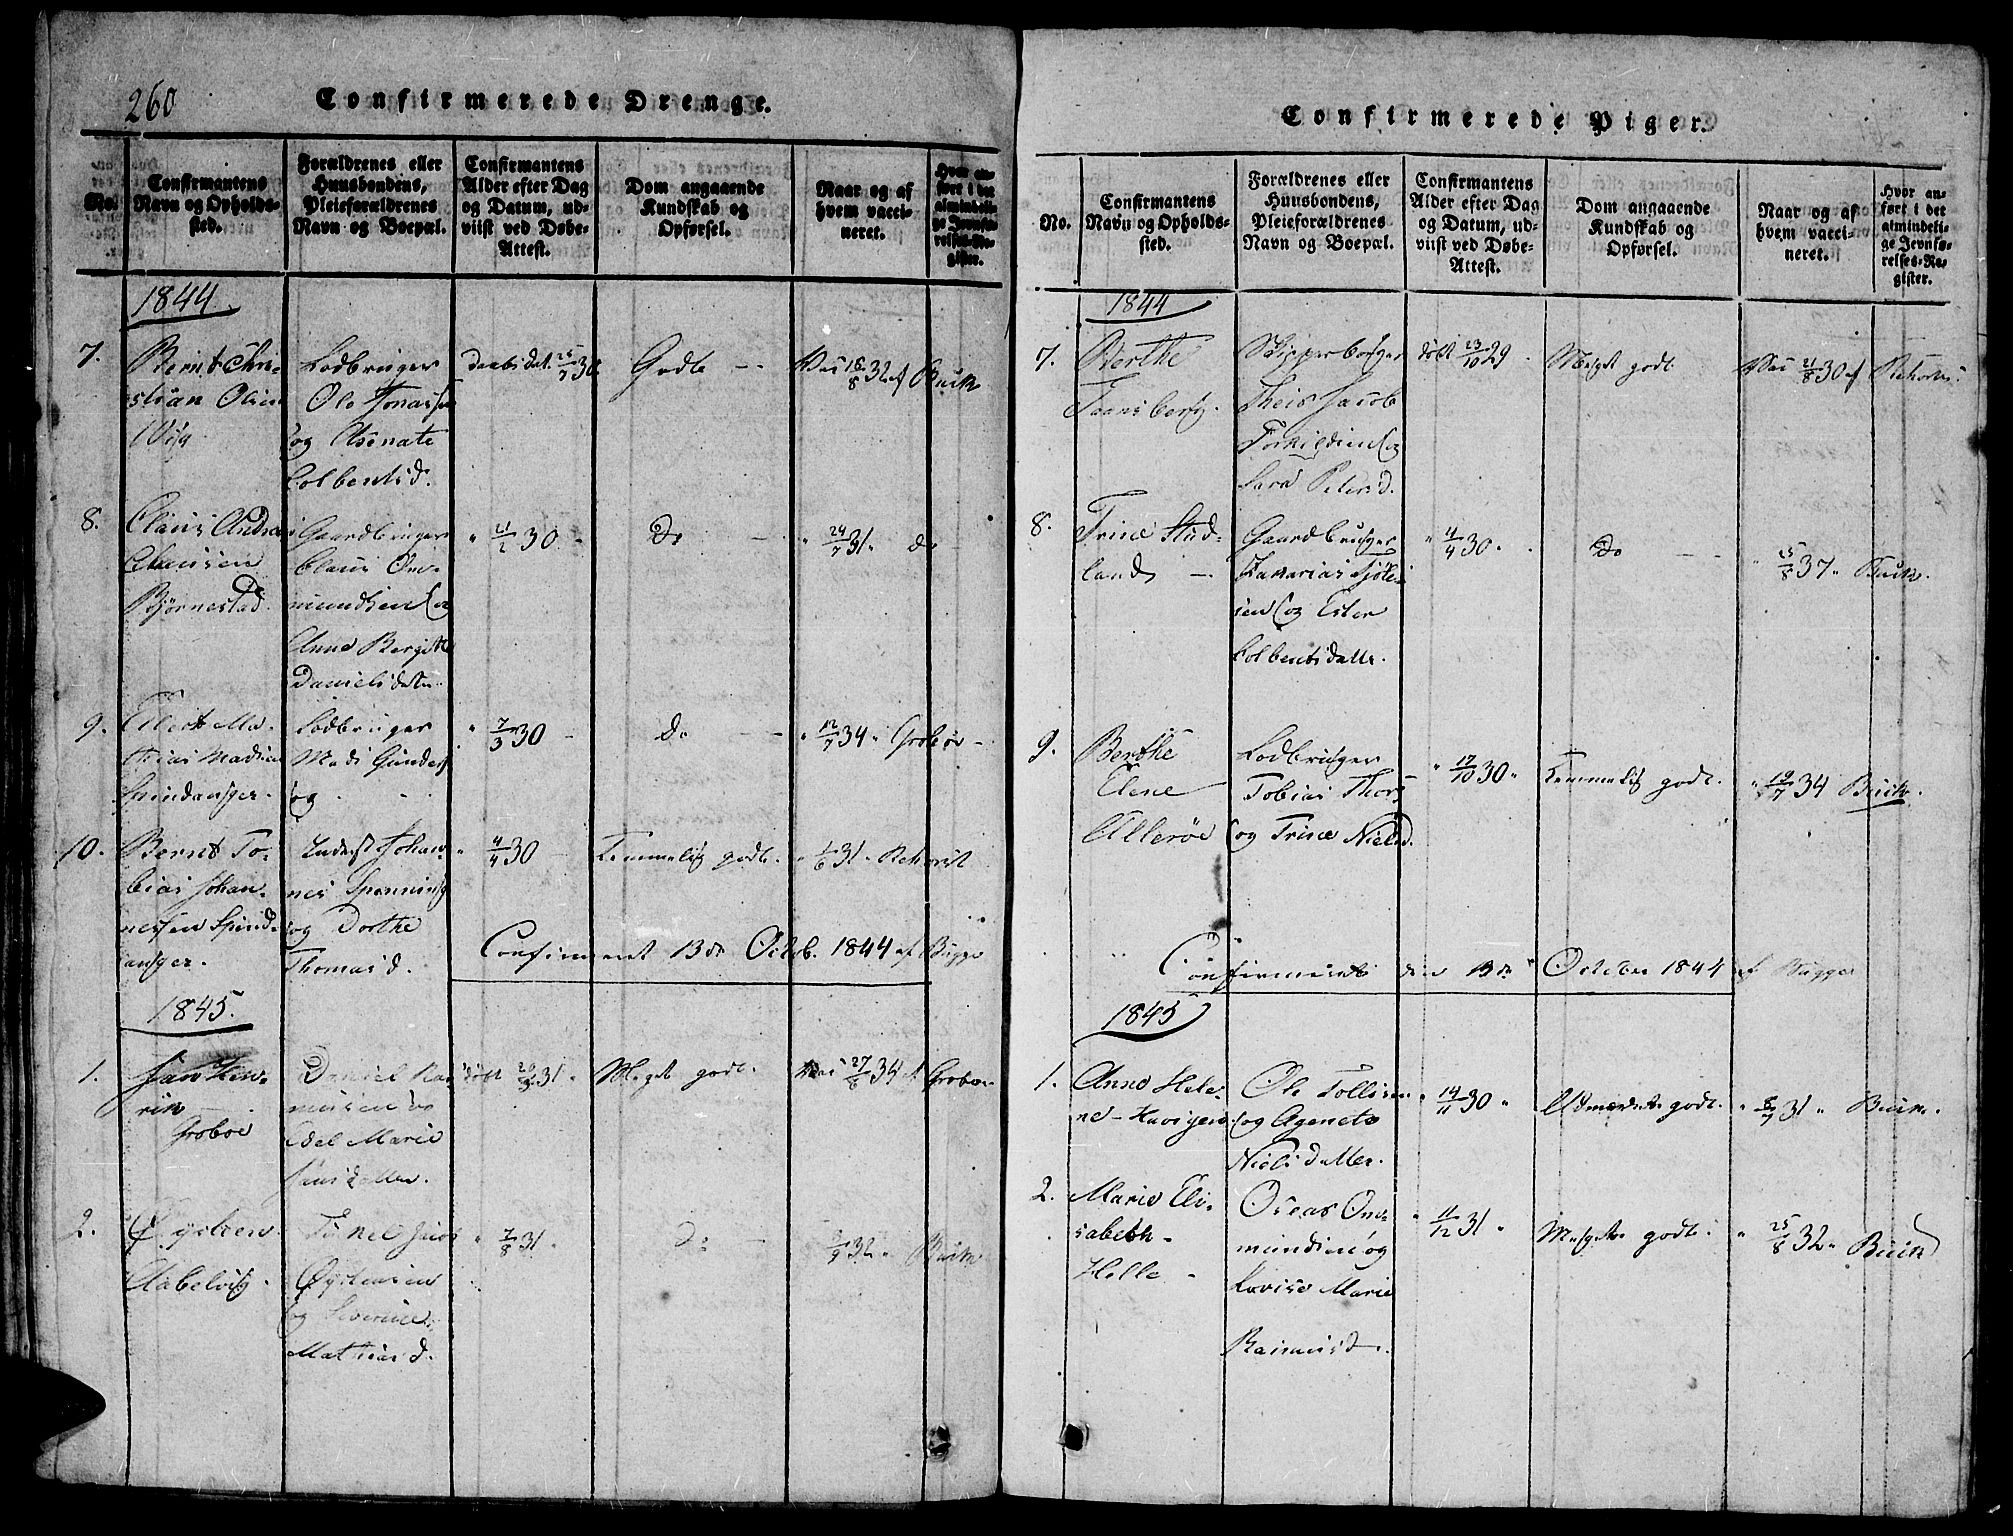 260
Confirmerede Drenge.
No.
Confirmantens
Navn og Opholds-
sted.
Forældrenes eller
Huusbondens,
Pleieforældrenes
Navn og Boepæl.
Confirmantens
Alder efter Dag
og Datum, ud-
viist ved Døbe-
Attest.
Dom angaaende
Kundskab og
Opførsel.
Naar og af
hvem vacci-
neret.
Hvor an-
ført i det
almindeli-
ge Jevnfø-
relses-Re-
gister.
1844
7.
Bernt Chri-
stian Olsen
Vig
Lodbruger
Ole Jonassen
og Asenate
Colbentsd.
Daabsdat. 25/7 30
Godt
Vac 16/8 32 af Buck
8.
Claus Andrea
Clausen
Bjørnestad.
Gaardbruger
Claus Om-
mundsen og
Anne Bergitte
Danielsdatter
" 21/2 30 -
Do
" 24/7 31 " do
9.
Elert Ma-
thias Madsen
Spindanger.
Lodbruger
Mads Gunders
og
" 7/3 30 -
Do
" 12/7 34 " Groboe -
10.
Bernt To-
bias Johan-
nessen Spind-
anger.
Inderst Johan-
nes Spanning
og Dorthe
Thomasd.
" 4/4 30 -
Temmelig godt.
" 1/6 31 " Rekevist
Confirmeret 13de Octob. 1844 af Bugge
1845.
1.
Jan Hen-
rik
Groboe
Daniel Ras-
musen og
Edel Marie
Jansdatter.
født 20/3 31 "
Meget godt.
Vac 27/6 34 af Groboe
2.
Øysten
Aabelvig.
Tørkel Jacob
Øystensen
og Severine
Mathiasd.
" 7/8 31 "
Do
2/9 32 " Buck
Confirmerede Piger.
No.
Confirmantens
Navn og Opholds-
sted.
Forældrenes eller
Huusbondens,
Pleieforældrenes
Navn og Boepæl.
Confirmantens
Alder efter Dag
og Datum, ud-
viist ved Døbe-
Attest.
Dom angaaende
Kundskab og
Opførsel.
Naar og af
hvem vacci-
neret.
Hvor an-
ført i det
almindeli-
ge Jevnfø-
relses-Re-
gister.
1844
7.
Berthe
Faansberg.
Skipperborger
Theis Jacob
Torkildsen og
Sara Petersd.
født 23/10 29 .
Meget godt
Vac 21/8 30 af
8.
Trine Stud-
land -
Gaardbruger
Zakarias
sen og Ester
Colbentsdatter.
" 4/4 30 "
Do
" 25/8 37 " Buck.
9.
Berthe
Elene
Ullerøe
Lodbruger
Tobias Thors
og Trine Nielsd.
" 17/10 30 "
Temmelig godt.
" 19/7 34 Buck.
Confirmeret den 13de October 1844 af Bugge
1845
1.
Anne Hele-
ne - Kavigen
Ole Tollisen
og Agenete
Nielsdatter.
" 14/11 30 "
Udmærket godt.
" 8/7 31 " Buck.
2.
Marie Eli-
sabeth -
Helle -
Oseas Om-
mundsen og
Lovise Marie
Rasmusd.
" 11/12 31 "
Meget godt.
" 25/8 32 " Buck